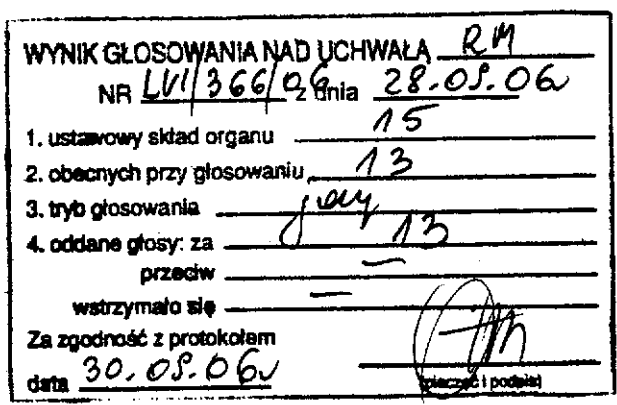 WYNIK GŁOSOWANIA NAD UCHWAŁĄ RM
NR LVI/366/06 z dnia 28.09.06
1. ustawowy skład organu 15
2. obecnych przy głosowaniu 13
3. tryb głosowania jawny
4. oddane głosy: za 13
przeciw —
wstrzymało się —
Za zgodność z protokołem
data 30.09.06
(pieczęć i podpis)